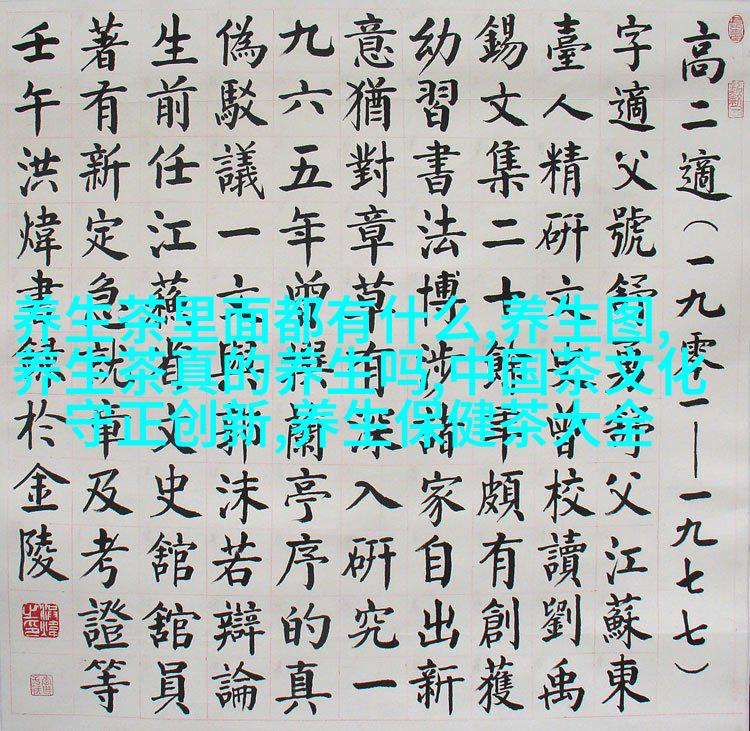 高二適（一九零一—一九七七）
字適父號舒舒父江蘇東
臺人精研文史曾校讀劉禹
錫文集二十餘年頗有創獲
幼習書法博涉諸家自出新
意猶對章草有深入研究一
九六五年曾撰蘭亭序的真
偽駁議一文與郭沫若辯論
生前任江蘇省文史舘舘員
著有新定急就章及考證等
壬午洪煒書錄於金陵
养生茶里面都有什么,养生图,
养生茶真的养生吗,中国茶文化
守正创新,养生保健茶大全